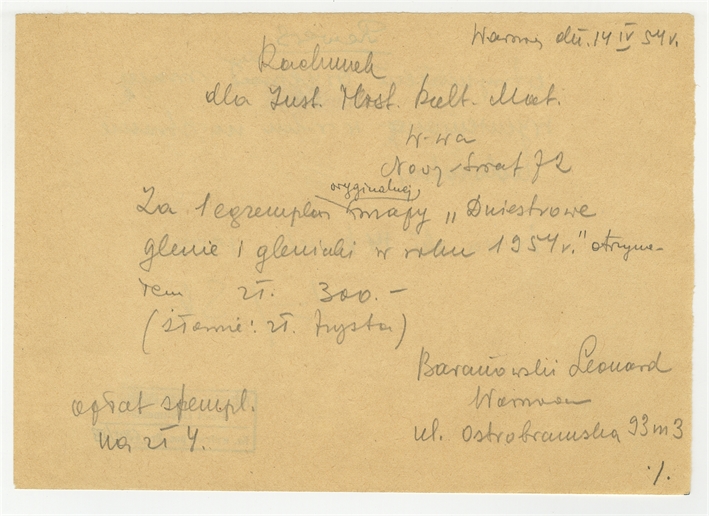 Warszawa, dń. 14 IV 54 r.
Rachunek
dla Inst. Hist. Kult. Mat.
W-wa
Nowy-Świat 72
Za 1 egzemplarz oryginalnej mapy „Dniestrowe
glenie i gleniaki w roku 1954 r." otrzyma-
łem zł. 300.-
(słownie: zł. trzysta)
Baranowski Leonard
Warszawa
ul. Ostrobramska 93 m 3
opłat stempl.
na zł 4.
./.